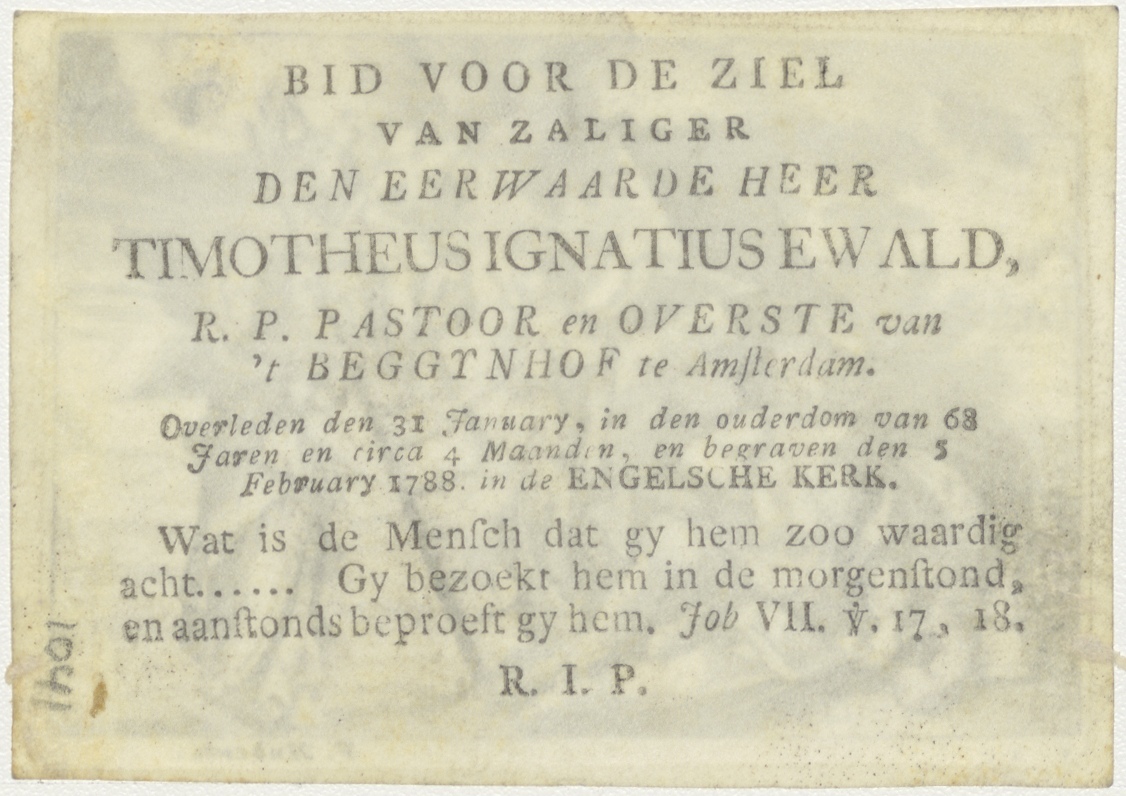 BID VOOR DE ZIEL
VAN ZALIGER
DEN EERWAARDE HEER
TIMOTHEUS IGNATIUS EWALD,
R. P. PASTOOR en OVERSTE van
't BEGGYNHOF te Amſterdam.
Overleden den 31 January, in den ouderdom van 68
Jaren en circa 4 Maanden, en begraven den 5
February 1788. in de ENGELSCHE KERK.
Wat is de Menſch dat gy hem zoo waardig
acht...... Gy bezoekt hem in de morgenſtond,
en aanſtonds beproeft gy hem. Job VII. ℣. 17, 18.
R. I. P.
1041